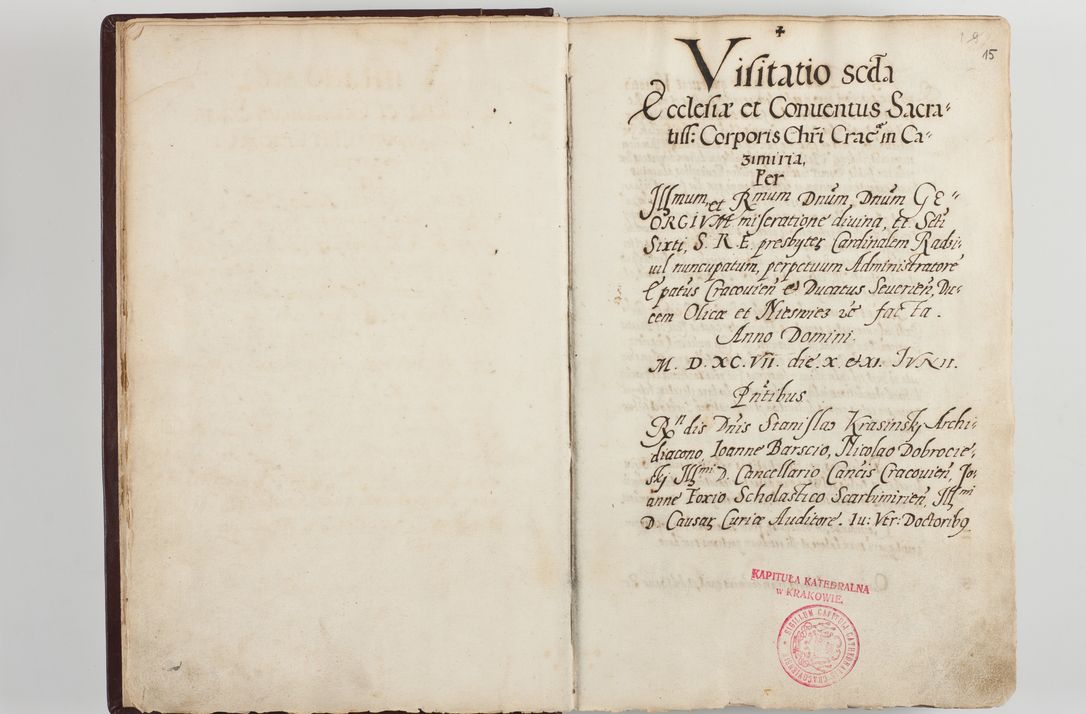 19
15
Visitatio scďa
Ecclesiæ et Conuentus Sacra-
tiss: Corporis Chr̃i Crac. in Ca-
zimiria,
Per
Illmum et Rmum Dnũm Dnũm GE-
ORGIVM miseratione diuina, tt. Scti
Sixti, S. R. E. presbyteꝝ Cardinalem Radzi-
uil nuncupatum, perpetuum Administratorẽ
Epatus Cracouieñ et Ducatus Seuerieñ, Du-
cem Olicæ et Niesuiez &c̃ facta.
Anno Domini.
M. D. XC. VII. die X. et XI. IVNII.
Pñtibus
Rndis Dnis Stanislao Krasinsky Archi-
diacono, Ioanne Barscio, Nicolao Dobrocie-
sky Illmi D. Cancellario Canc̃is Cracouieñ, Jo-
anne Foxio Scholastico Scarbimirieñ, Illmi
D. Causaꝝ Curiæ Auditore. Iu: Vtr: Doctoribꝰ
KAPITUŁA KATEDRALNA
w KRAKOWIE.
SIGILLUM CAPITULI CATHEDRALI CRACOVIENSIS